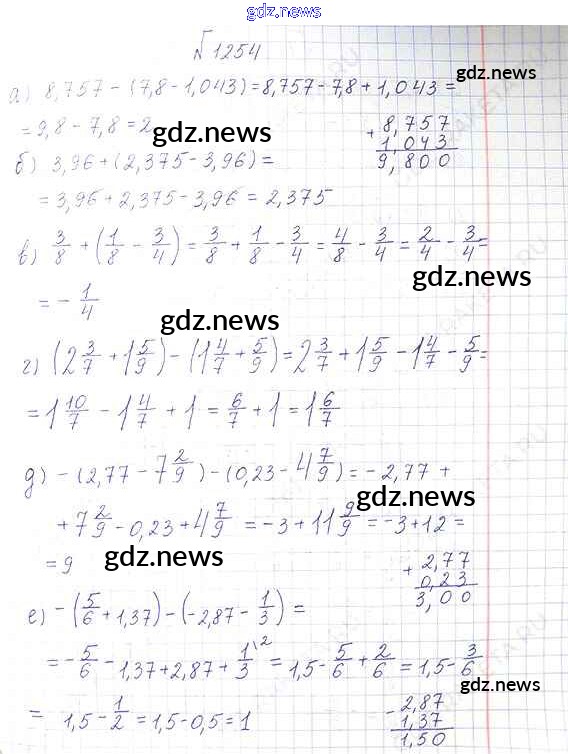 gdz.news
№1254
gdz.news
а) 8,757 - (7,8 - 1,043) = 8,757 - 7,8 + 1,043 =
= 9,8 - 7,8 = 2
gdz.news
+ 8,757
1,043
9,800
б) 3,96 + (2,375 - 3,96) =
= 3,96 + 2,375 - 3,96 = 2,375
в) 3/8 + (1/8 - 3/4) = 3/8 + 1/8 - 3/4 = 4/8 - 3/4 = 2/4 - 3/4 =
gdz.news
= - 1/4
gdz.news
г) (2 3/7 + 1 5/9) - (1 4/7 + 5/9) = 2 3/7 + 1 5/9 - 1 4/7 - 5/9 =
= 1 10/7 - 1 4/7 + 1 = 6/7 + 1 = 1 6/7
д) - (2,77 - 7 2/9) - (0,23 - 4 7/9) = - 2,77 +
gdz.news
+ 7 2/9 - 0,23 + 4 7/9 = -3 + 11 9/9 = -3 + 12 =
= 9
gdz.news
+ 2,77
0,23
3,00
е) - (5/6 + 1,37) - (-2,87 - 1/3) =
= - 5/6 - 1,37 + 2,87 + 1/3 \2 = 1,5 - 5/6 + 2/6 = 1,5 - 3/6
gdz.news
= 1,5 - 1/2 = 1,5 - 0,5 = 1
- 2,87
1,37
1,50